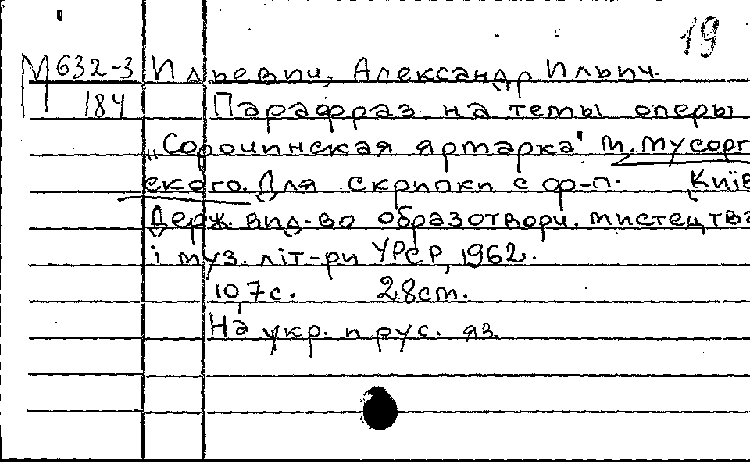 19
М 632-3 Ильевич, Александр Ильич.
184 Парафраз на темы оперы
„Сорочинская ярмарка" М. Мусорг-
ского. Для скрипки с ф-п. Київ
Держ. вид-во образотворч. мистецтва
і муз. літ-ри УРСР, 1962.
10,7с. 28cm.
На укр. и рус. яз.